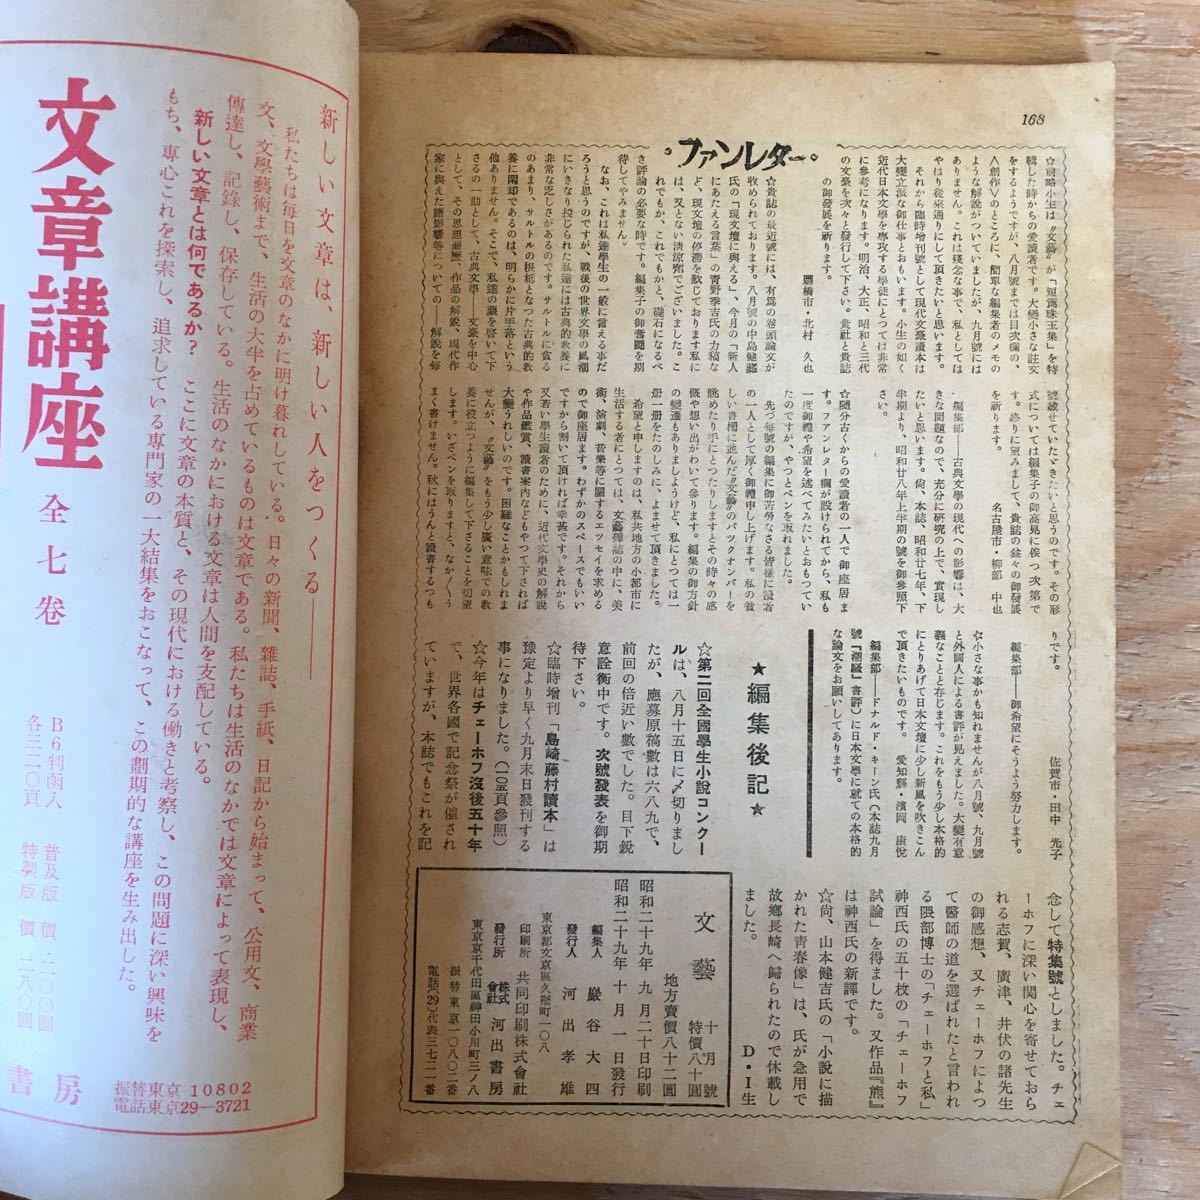 168
。ファンレター。
☆前略小生は〝文藝〟が「短篇珠玉集」を特
輯した時からの愛讀者です。大變小さな註文
をするようですが、八月號までは目次欄の、
∧創作∨のところに、簡單な編集者のメモの
ような解説がついていましたが、九月號には
ありません。これは殘念な事で、私としては
やはり從來通りにして頂きたいと思います。
それから臨時增刊號として現代文豪讀本は
大變立派な御仕事とおもいます。小生の如く
近代日本文學を專攻する學徒にとつては非常
に參考になります。明治、大正、昭和と三代
の文豪を次々と發行して下さい。貴社と貴誌
の御發展を祈ります。
豐橋市・北村 久也
☆貴誌の最近號には、有爲の卷頭論文が
收められております。八月號の中島健藏
氏の「現文壇に與える」、今月の「新人
にあたえる言葉」の靑野季吉氏の力稿な
ど、現文壇の停滯を歎じております私に
は、又とない淸涼劑でございました。こ
れでもか、これでもかと、礎石になるべ
き評論の必要な時です。編集子の御奮鬪を期
待してやみません。
なお、これは私達學生の一般に言える事だ
ろうと思うのですが、戰後の世界文學の風潮
にいきなり投じられた私達には古典的敎養に
非常な乏しさがあるのです。サルトルに貪る
のあまり、サルトルの根柢となつた古典的敎
養に閑却であるのは、明らかに片手落という
他ありません。そこで、私達の蒙を啓いて下
さるの一助として、古典文學――文豪を中心
として、その思想遍歷、作品の解說、現代作
家に與えた諸影響等についての――解說を每
號載せていたゞきたいと思うのです。その形
式については編集子の御高見に俟つ次第で
す。終りに望みまして、貴誌の益々の御發展
を祈ります。
名古屋市・柳部 中也
編集部――古典文學の現代への影響は、大
きな問題なので、充分に硏究の上で、實現し
たいと思います。尙、本誌、昭和廿七年、下
半期より、昭和廿八年上半期の號を御參照下
さい。
☆隨分古くからの愛讀者の一人で御座居ま
す。フアンレター欄が設けられてから、私も
一度御禮や希望を述べてみたいとおもつてい
たのですが、やつとペンを取れました。
先づ每號の編集に御苦勞なさる皆樣に讀者
の一人として厚く御禮申し上げます。私の貧
しい書棚に並んだ〝文藝〟のバツクナンバーを
眺めたり手にとつたりしますとその時々の感
慨や想い出がわいて參ります。編集の御方針
の變遷もありましようけど、私にとつては一
册一册をたのしみに、よませて頂きました。
希望と申しますのは、私共地方の小都市に
生活する者にとつては、文藝雜誌の中に、美
術、演劇、音樂等に關するエツセイを求める
ので御座居ます。わずかのスペースでもいい
ですから割いて頂ければ幸甚です。それから
又若い學生讀者のために、近代文學史の解說
や作品鑑賞、讀書案內などもやつて下されば
大變うれしいのです。困難なことかもしれま
せんが、〝文藝〟をもう少し廣い意味での敎
養に役立つように編集して下さることを切望
します。いざペンを取りますと、なか〱う
まく書けません。秋にはうんと讀書するつも
りです。
佐賀市・田中 光子
編集部――御希望にそうよう努力します。
☆小さな事かも知れませんが八月號、九月號
と外國人による書評が見えました。大變有意
義なことと存じます。これをもう少し本格的
にとりあげて日本文壇に少し新風を吹きこん
で頂きたいものです。 愛知縣・濱岡 康悅
編集部――ドナルド・キーン氏(本誌九月
號「潮騷」書評)に日本文學に就ての本格的
な論文をお願いしてあります。
★編集後記★
☆第二回全國學生小說コンクー
ルは、八月十五日に〆切りまし
たが、應募原稿數は六八九で、
前回の倍近い數でした。目下銳
意詮衡中です。次號發表を御期
待下さい。
☆臨時增刊「島崎藤村讀本」は
豫定より早く九月末日發刊する
事になりました。(一〇五頁參照)
☆今年はチェーホフ沒後五十年
で、世界各國で記念祭が催され
ていますが、本誌でもこれを記
念して特集號としました。チェ
ーホフに深い關心を寄せておら
れる志賀、廣津、井伏の諸先生
の御感想、又チェーホフによつ
て醫師の道を選ばれたと言われ
る隈部博士の「チェーホフと私」
神西氏の五十枚の「チェーホフ
試論」を得ました。又作品『熊』
は神西氏の新譯です。
☆尙、山本健吉氏の「小說に描
かれた靑春像」は、氏が急用で
故鄕長崎へ歸られたので休載し
ました。
D・I生
文藝 十月號
特價八十圓
地方賣價八十二圓
昭和二十九年 九月二十日印刷
昭和二十九年 十月一日發行
編集人 巖谷大四
發行人 河出孝雄
東京都文京區久堅町一〇八
印刷所 共同印刷株式會社
發行所 株式會社 河出書房
東京京千代田區神田小川町三ノ八
振替東京一〇八〇二番
電話(29)代表三七二一番
新しい文章は、新しい人をつくる――
私たちは每日を文章のなかに明け暮れしている。日々の新聞、雜誌、手紙、日記から始まって、公用文、商業
文、文學藝術まで、生活の大半を占めているものは文章である。私たちは生活のなかでは文章によって表現し、
傳達し、記錄し、保存している。生活のなかにおける文章は人間を支配している。
新しい文章とは何であるか? ここに文章の本質と、その現代における働きと考察し、この問題に深い興味を
もち、專心これを探索し、追求している專門家の一大結集をおこなって、この劃期的な講座を生み出した。
文章講座 全七卷
B6判函入 普及版 價 二〇〇圓
各三二〇頁 特製版 價 二八〇圓
書房
振替東京 10802
電話東京29―3721